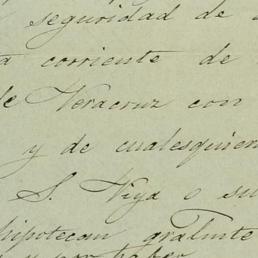 seguridad de
corriente de
de Veracruz con
y de cualesquier
S. Viya o su
hipotecan gralmte
y por haber